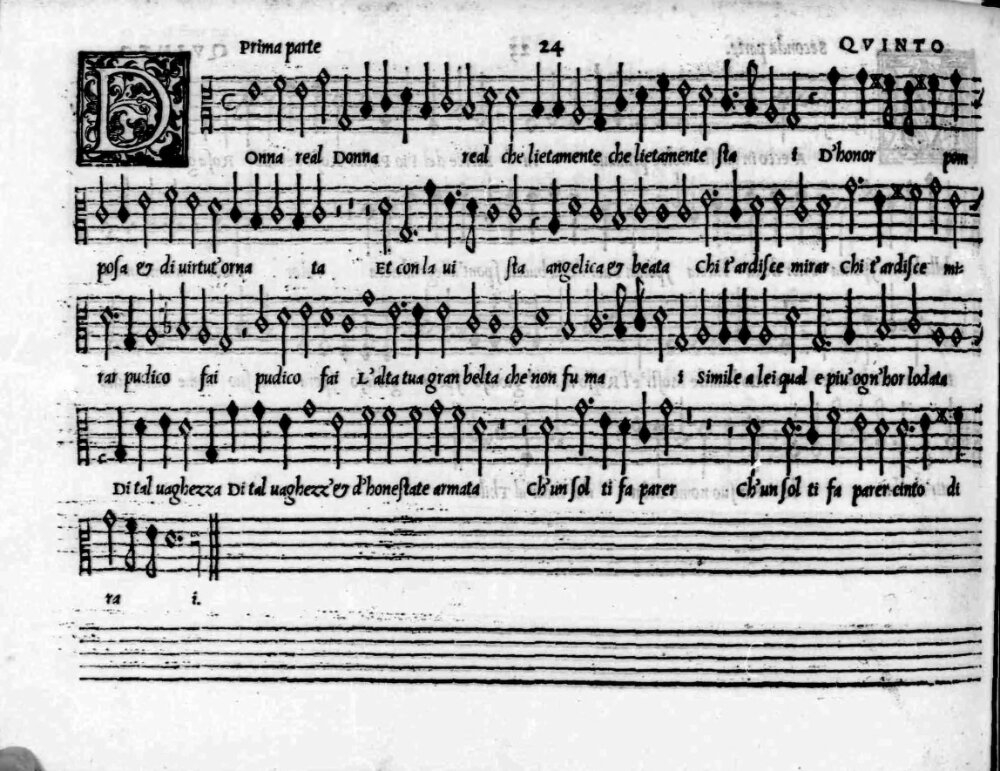 Prima parte 24 QVINTO
DOnna real Donna real che lietamente che lietamente sta i D'honor pom
posa & di uirtut'orna ta Et con la ui sta angelica & beata Chi t'ardisce mirar Chi t'ardisce mi-
rar pudico fai pudico fai L'alta tua gran belta che non fu ma i Simile a lei qual e piu'ogn'hor lodata
Di tal uaghezza Di tal uaghezz'& d'honestate armata Ch'un sol ti fa parer Ch'un sol ti fa parer cinto di
ra i.